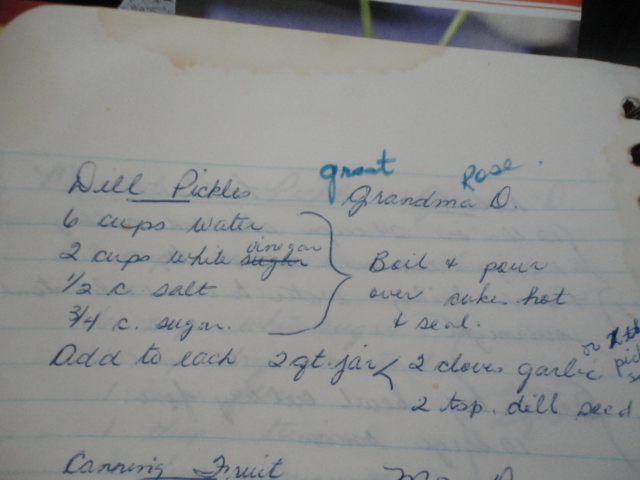 great Rose.
Dill Pickles Grandma O.
6 cups water
2 cups white sugar vinegar
1/2 c. salt
3/4 c. sugar.
Boil & pour
over cukes hot
& seal.
Add to each 2 qt. jar < 2 cloves garlic or
2 tsp. dill seed
Canning Fruit